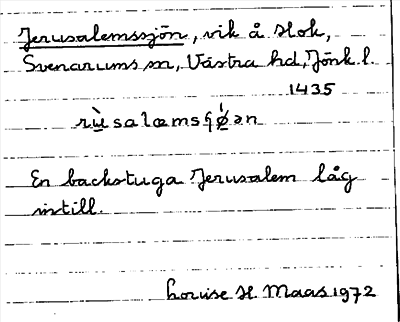 Jerusalemssjön, vik å Hok,
Svenarums sn, Västra hd, Jönk. l.
1435
En backstuga Jerusalem låg
intill.
Louise H. Maas 1972